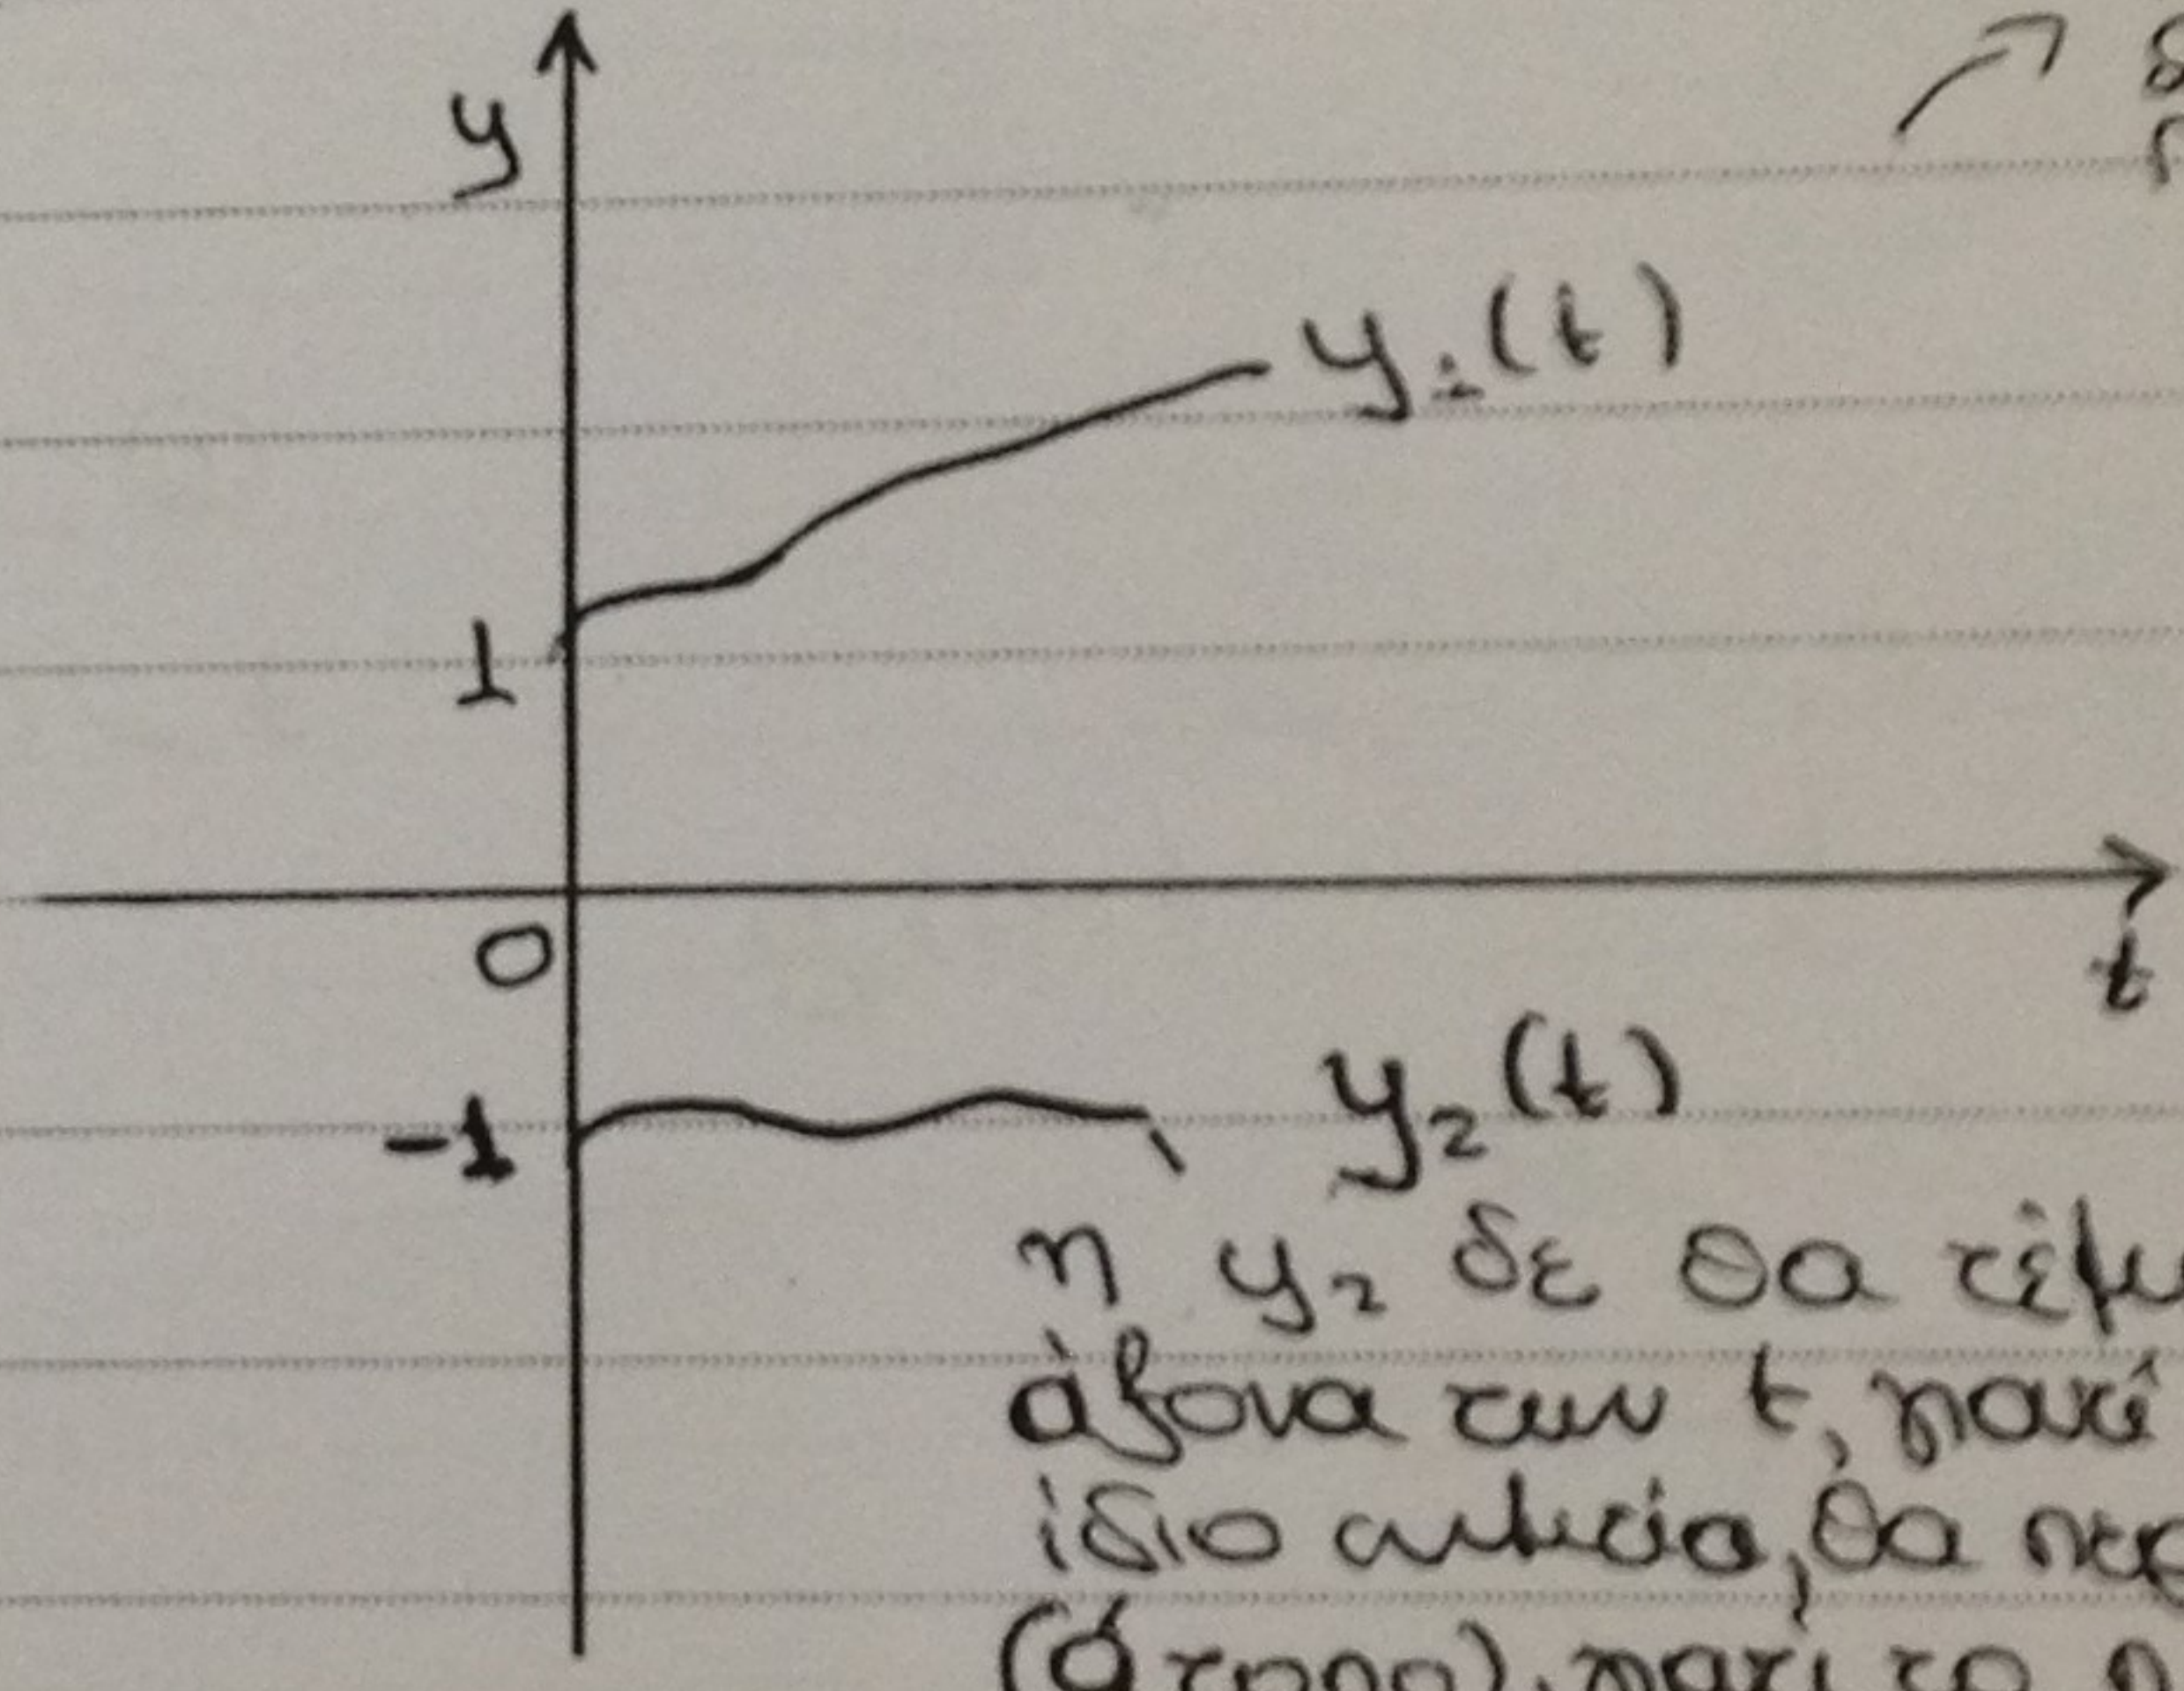 y
y₁(t)
1
t
0
y₂(t)
-1
η y₂ δε θα
άξονα των t, ποτέ
ίδιο σημείο, θα
(άτοπο), γιατί το